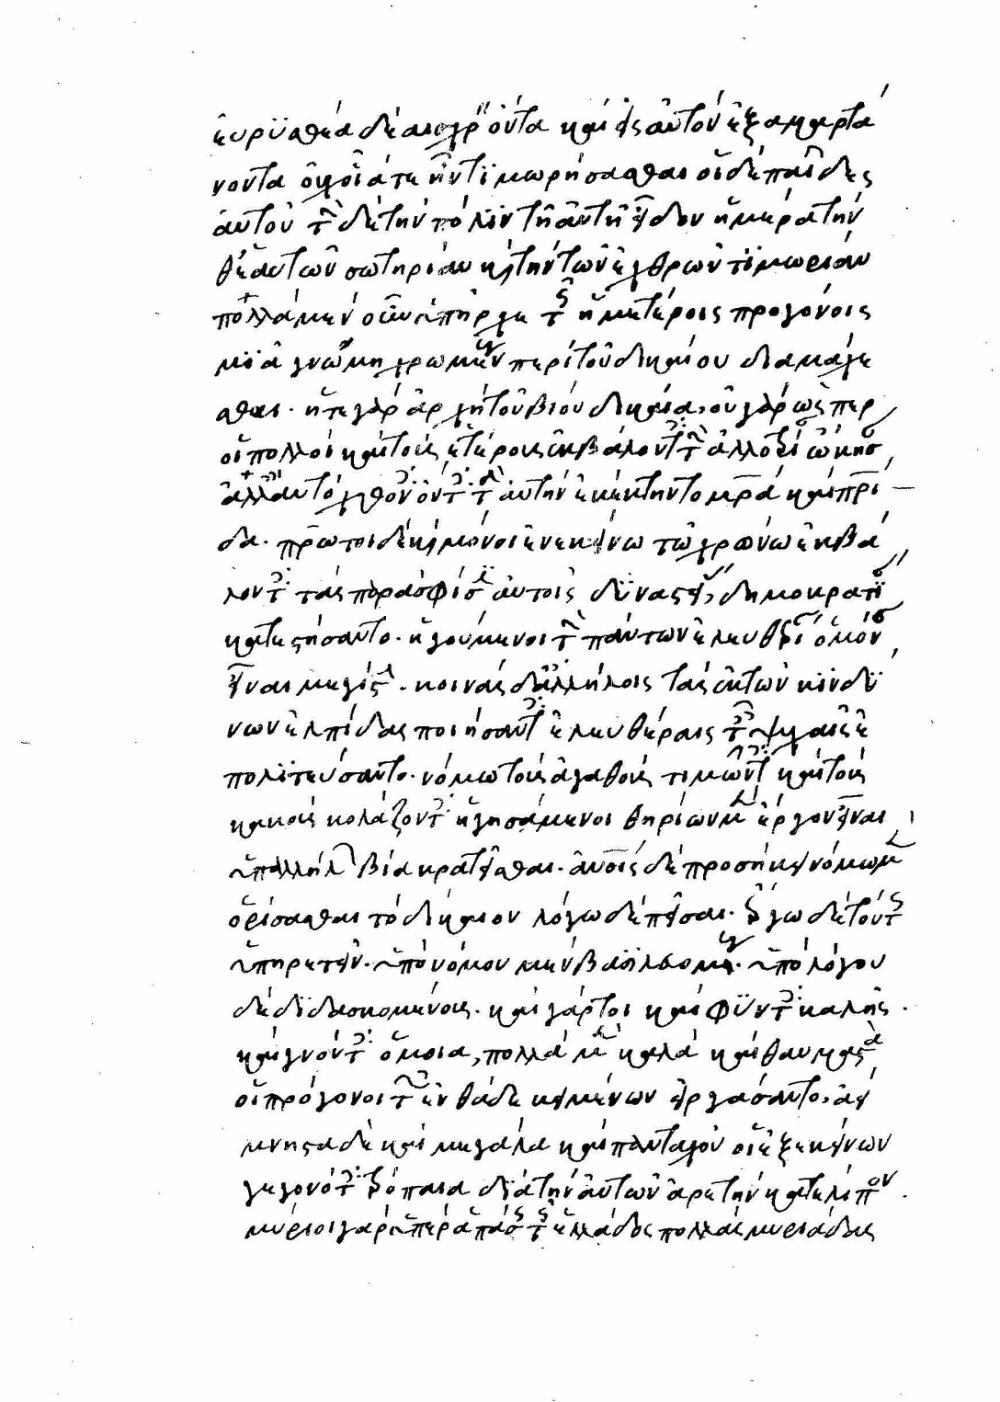 εὐρϋσθέα δὲ αἰσχρὸν ὄντα καὶ εἰς αὐτὸν ἐξαμαρτά
νοντα οὐχ οἷός τε ἦν τϊμωρήσασθαι οἱ δὲ παῖδες
αὐτοῦ τὴν δὲ τὴν πόλϊν τῆ αὐτῆ εἶδον ἡμέρα τήν
θ' ἑαυτῶν σωτηρίαν καὶ τὴν τῶν ἐχθρῶν τϊμωρίαν
πολλὰ μὲν οὖν ὑπῆρχε τοῖς ἡμετέροις προγόνοις
μϊᾶ γνώμη χρωμένοις περὶ τοῦ δικαίου διαμάχε
σθαι. ἥ τε γὰρ ἀρχὴ τοῦ βίου δικαία, οὐ γὰρ ὥσπερ
οἱ πολλοὶ καὶ τοὺς ἑτέρους ἐκβαλόντες τὴν ἀλλοτρίαν ὤκησαν
ἀλλ' αὐτόχθονες ὄντες τὴν αὐτὴν ἐκέκτηντο μρα καὶ πρι
δα. πρῶτοι δὲ καὶ μόνοι ἐν ἐκείνω τῶ χρόνω ἐκβα
λόντες τὰς παρὰ σφίσιν αὐτοῖς δϋναστείας, δημοκρατίαν
κατεστήσαντο. ἡγούμενοι τὴν πάντων ἐλευθερίαν ὁμόνοιαν
εἶναι μεγίστην. κοινὰς δ' ἀλλήλοις τὰς ἐκ τῶν κϊνδϋ
νων ἐλπίδας ποιήσαντες ἐλευθέραις ταῖς ψυχαῖς ἐ
πολϊτεύσαντο. νόμω τοὺς ἀγαθοὺς τιμῶντες καὶ τοὺς
κακοὺς κολάζοντες ἡγησάμενοι θηρίων μὲν ἔργον εἶναι
ὑπ' ἀλλήλων βία κρατεῖσθαι. ἀνοις δὲ προσήκειν νόμω μὲν
ὁρίσασθαι τὸ δίκαιον λόγω δὲ πεῖσαι. ἔργω δὲ τούτοις
ὑπηρετεῖν. ὑπὸ νόμου μὲν βασϊλευομένους. ὑπὸ λόγου
δὲ δϊδασκομένους. καὶ γάρ τοι καὶ φϋντες καλῶς.
καὶ γνόντες ὅμοια, πολλὰ μὲν καλὰ καὶ θαυμαστὰ
οἱ πρόγονοι τῶν ἐνθάδε κειμένων εἰργάσαντο, ἀεί
μνηστα δὲ καὶ μεγάλα καὶ πανταχοῦ οἱ ἐξ ἐκείνων
γεγονότες τρόπαια διὰ τὴν αὐτῶν ἀρετὴν κατέλιπον.
μύριοι γὰρ ὑπὲρ ἁπάσης τῆς ἑλλάδος πολλὰς μυριάδας